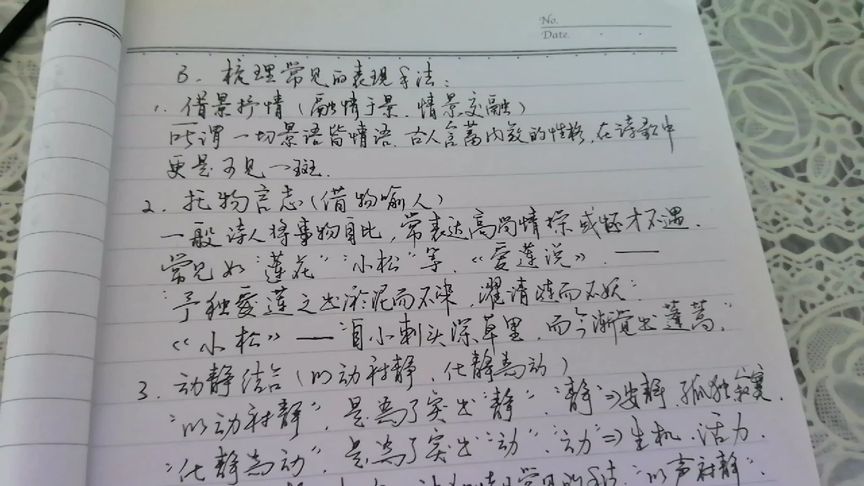 No.
Date.
B. 梳理常见的表现手法:
1. 借景抒情(融情于景、情景交融)
所谓一切景语皆情语. 古人含蓄内敛的性格, 在诗歌中
更是可见一斑.
2. 托物言志(借物喻人)
一般诗人将事物自比, 常表达高尚情操或怀才不遇.
常见如"莲花""小松"等. 《爱莲说》. ——
"予独爱莲之出淤泥而不染, 濯清涟而不妖".
《小松》——"自小刺头深草里, 而今渐觉出蓬蒿."
3. 动静结合(以动衬静、化静为动)
"以动衬静", 是为了突出"静". "静"⇒安静. 孤独寂寞.
"化静为动", 是为了突出"动". "动"⇒生机. 活力.
常见的手法. "以声衬静".